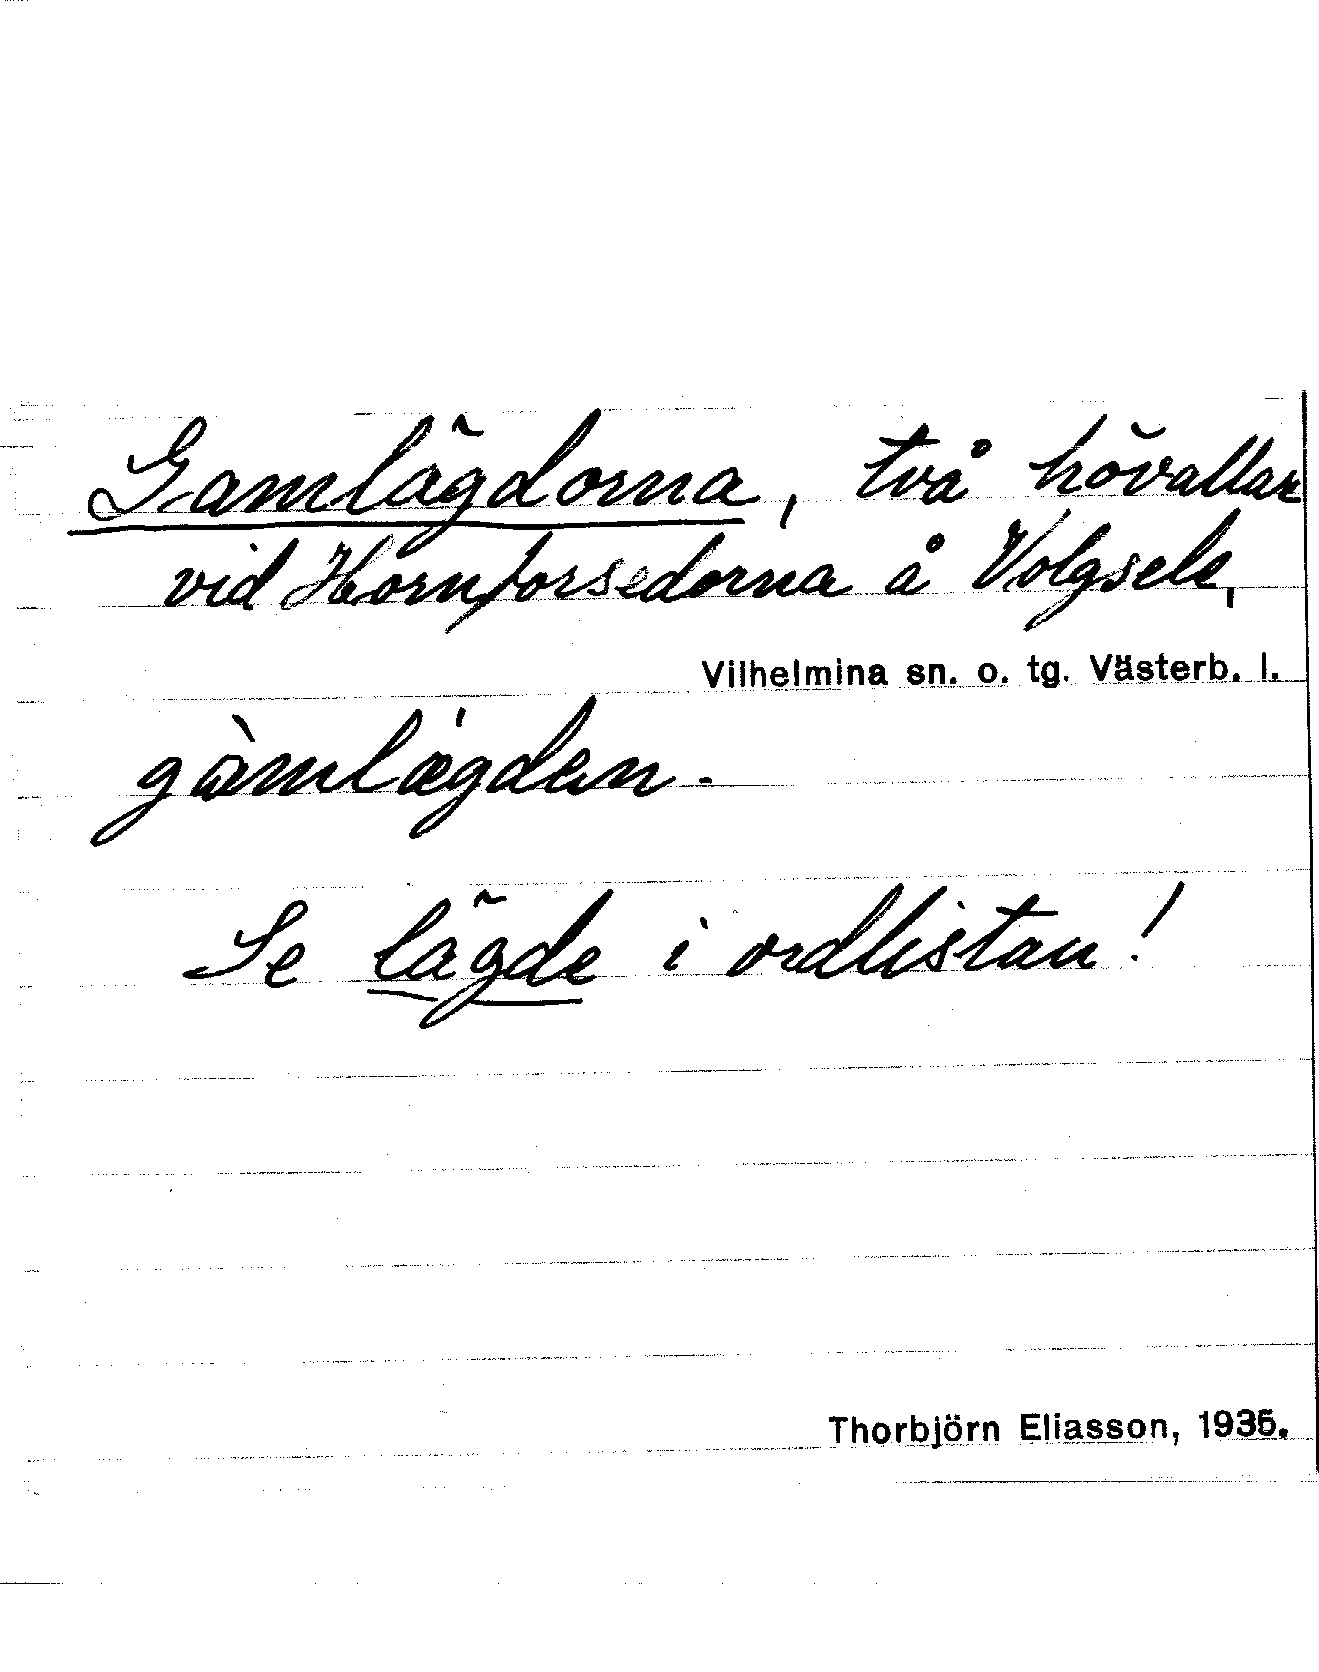 Gamlägdorna, två hövallar
vid Hornforsedorna å Volgsele,
Vilhelmina sn. o. tg. Västerb. l.
gàmlǽgdan.
Se lägde i ordlistan!
Thorbjörn Eliasson, 1935.